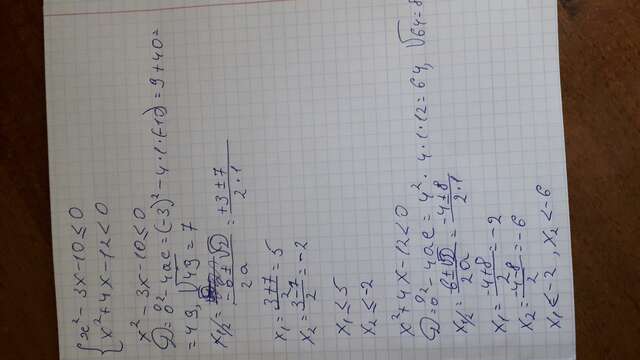 x² - 3x - 10 ≤ 0
x² + 4x - 12 < 0
x² - 3x - 10 ≤ 0
D = b² 4ac = (-3)² - 4·1·(-10) = 9 + 40 =
= 49, √49 = 7
x₁/₂ = -b ± √D / 2a = +3 ± 7 / 2·1
x₁ = 3+7 / 2 = 5
x₂ = 3-7 / 2 = -2
x₁ ≤ 5
x₂ ≤ -2
x² + 4x - 12 < 0
D = b² 4ac = 4² · 4·1·12 = 64, √64 = 8
x₁/₂ = b ± √D / 2a = -4 ± 8 / 2·1
x₁ = -4+8 / 2 = -2
x₂ = -4-8 / 2 = -6
x₁ ≤ -2, x₂ ≤ -6